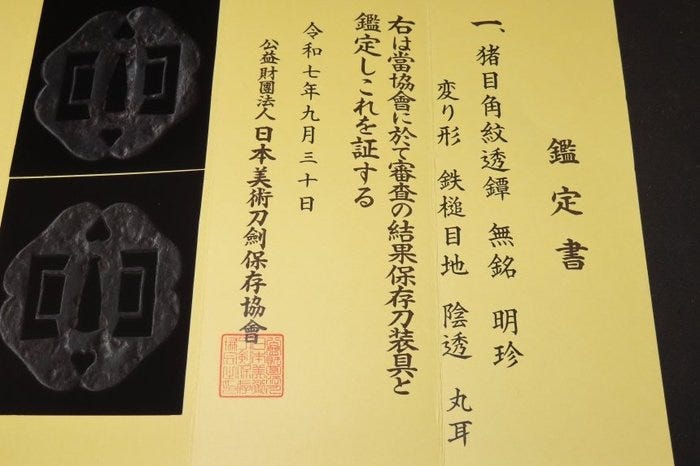 鑑定書
一、猪目角紋透鐔 無銘 明珍
変り形 鉄槌目地 陰透 丸耳
右は當協會に於て審査の結果保存刀装具と
鑑定しこれを証する
令和七年九月三十日
公益財團法人 日本美術刀劍保存協會